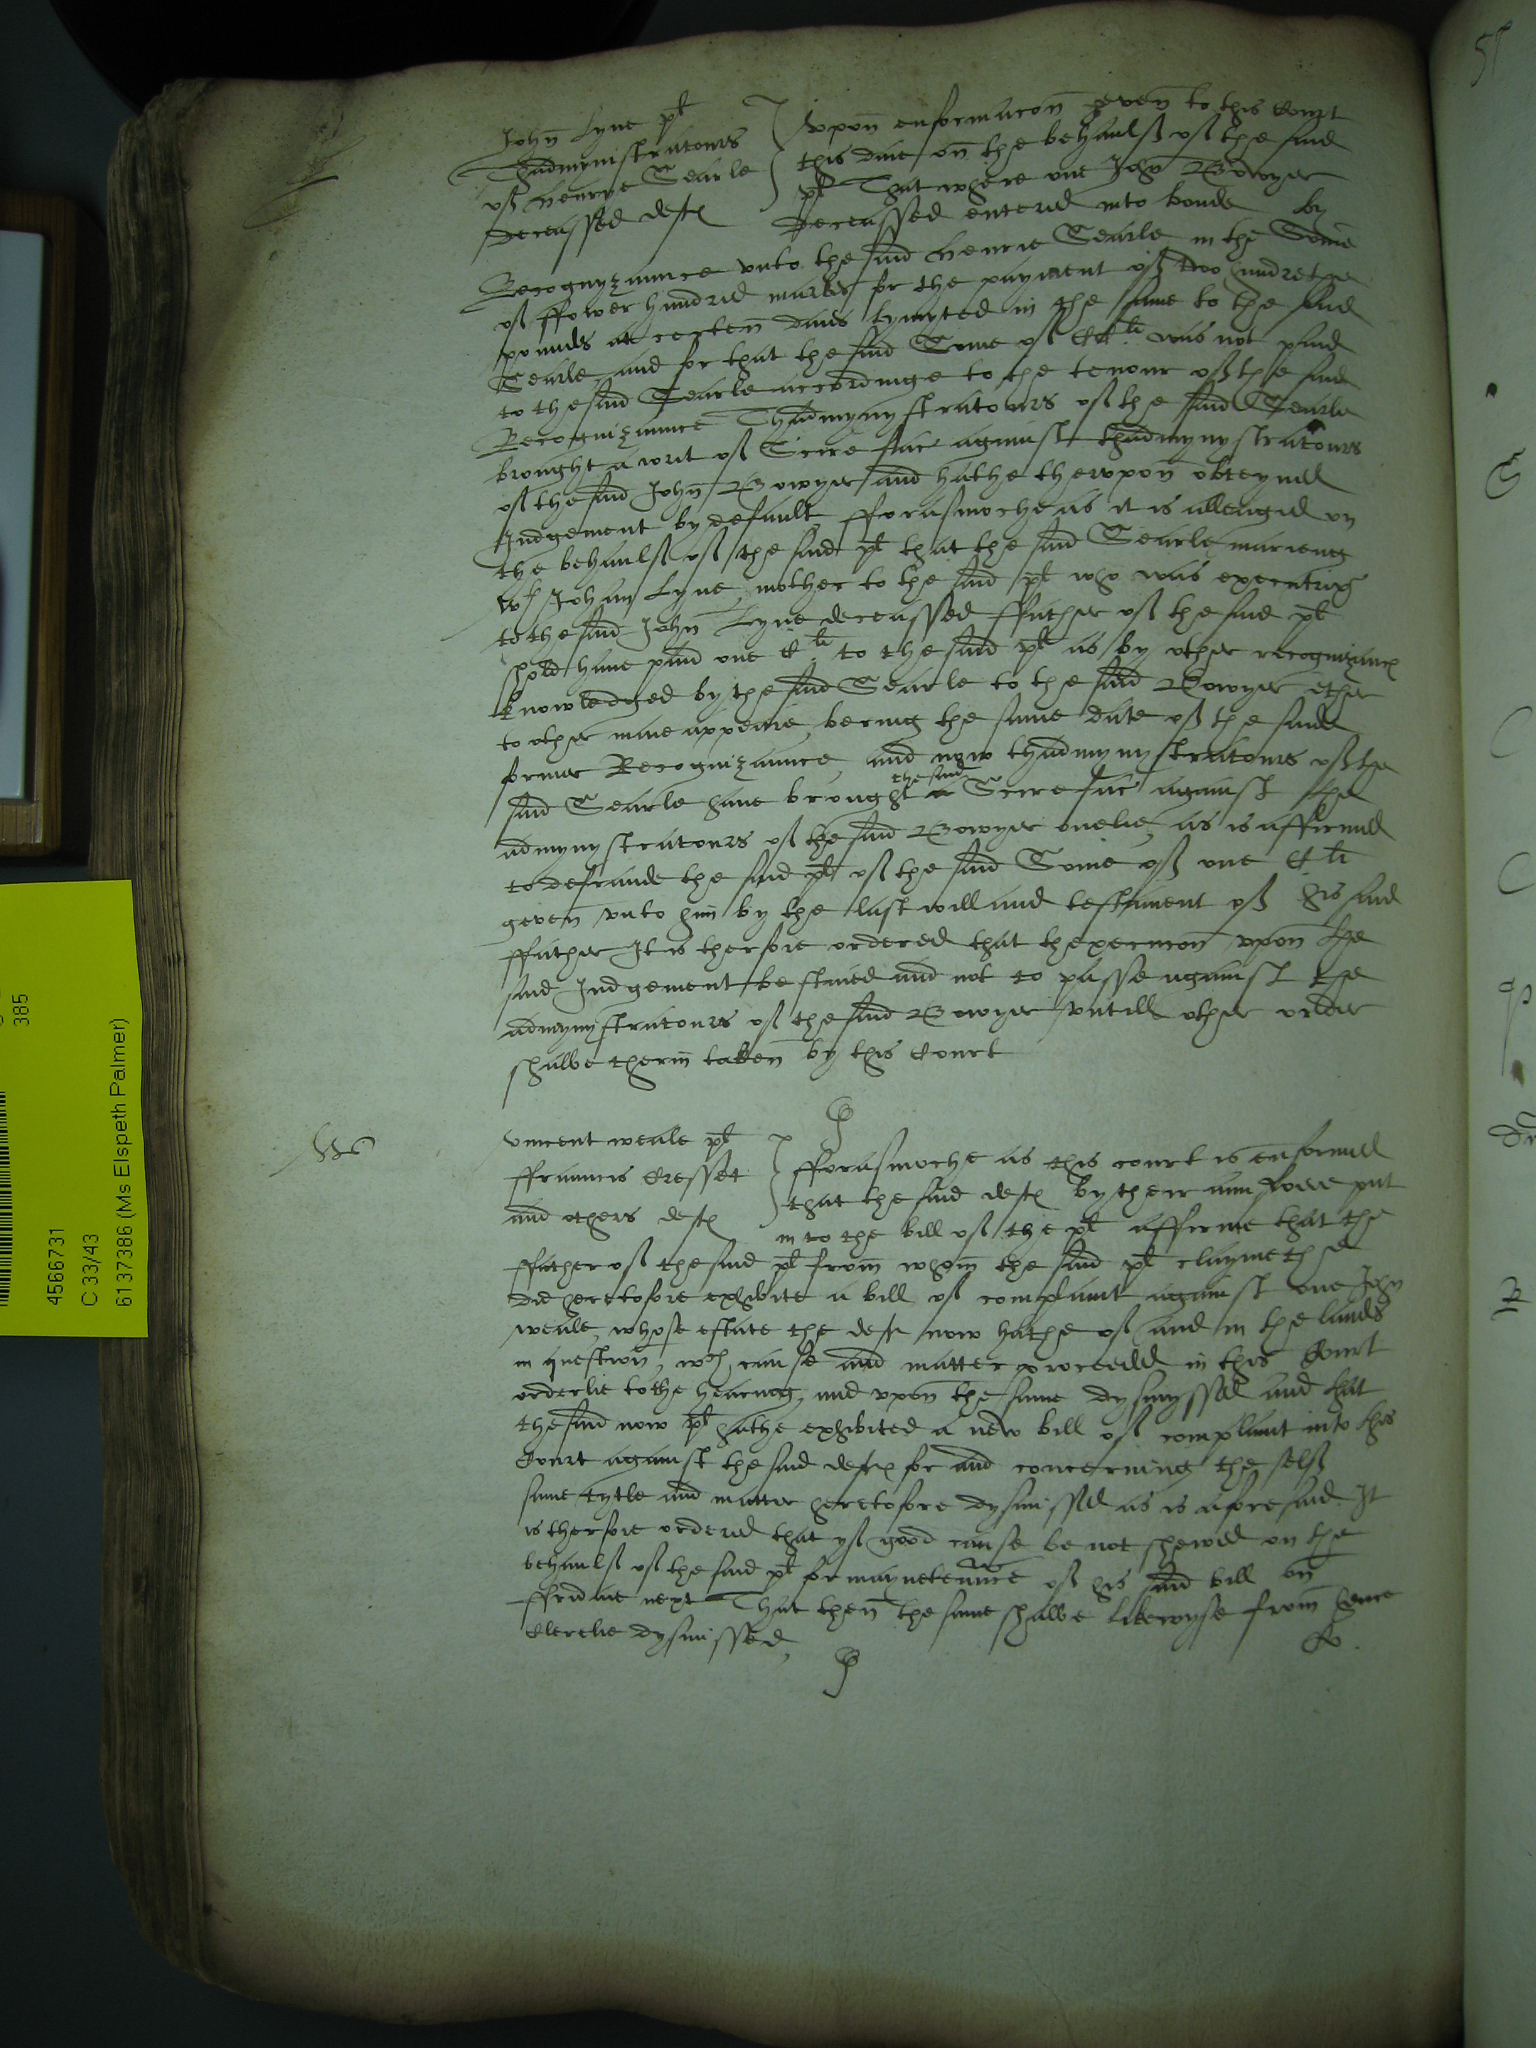 John Lyne pl
Thadmynistratours
of Henrye Searle
deceassed deft
Vpon enformacon geven to this Court
this daie on the behaulf of the said
pl That where one John Bowyer
deceassed entered into bonde by
Recognyzaunce vnto the said Henrie Searle in the Some
of ffower hundred markes for the payment of two hundrethe
pounds at certen daies lymyted in the same to the said
Searle, and for that the said Some of CCli was not paid
to the said Searle accordinge to the tenour of the said
Recognizaunce Thadmynystratours of the said Searle
brought a writ of Scire fac against thadmynystratours
of the said John Bowyer and hathe thervpon obteyned
Iudgement by default, fforasmoche as it is alleaged on
the behaulf of the said pl that the said Searle marieng
wth Johan Lyne, mother to the said pl who was executrix
to the said John Lyne deceassed ffather of the said pl
shold have paid one Cli to the said pl as by other recognizance
knowledged by the said Searle to the said Bowyer ether
to other maie appeare, bering the same date of the said
former Recognizaunce, and now thadmynystratours of the
said Searle have brought the said Scire fac against the
admynystratours of the said Bowyer onelie, as is affirmed
to defraude the said pl of the said Some of one Cli
geven vnto him by the last will and testament of his said
ffather It is therfore ordered that thexecucon vpon the
said Iudgement be staied and not to passe against the
admynystratours of the said Bowyer vntill other order
shalbe therin taken by this Court
Vincent weale pl
ffrauncis Cressett
and others deft
fforasmoche as this court is enformed
that the said deft by their aunswere put
in to the bill of the pl affirme that the
ffather of the said pl from whom the said pl claymeth
did heretofore exhibite a bill of complaint against one John
weale, whose estate the deft now hathe of and in the lands
in question, wch cause and matter proceeded in this Court
orderlie to the hearing, and vpon the same dysmyssed and that
the said now pl hathe exhibited a new bill of complaint into this
Court against the said deft for and concerning the self
same tytle and matter heretofore dysmissed as is aforesaid. It
is therfore ordered that yf good cause be not shewed on the
behaulf of the said pl for maynetenunce of his said bill on
ffridaie next That then the same shalbe likewyse from hence
clerelie dysmissed,
45 66731
C 33/43
6137386 (Ms Elspeth Palmer)
385